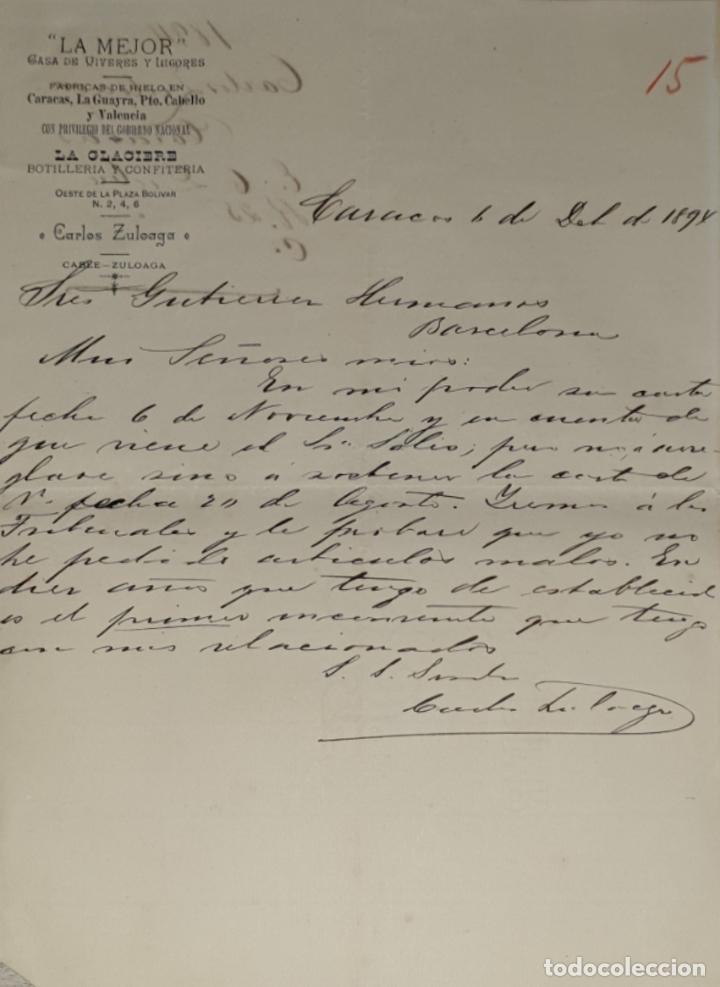 "LA MEJOR"
CASA DE VIVERES Y LICORES
FABRICAS DE HIELO EN
Caracas, La Guayra, Pto. Cabello
y Valencia
CON PRIVILEGIO DEL GOBIERNO NACIONAL
LA GLACIERE
BOTILLERIA Y CONFITERIA
OESTE DE LA PLAZA BOLIVAR
N. 2, 4, 6
Carlos Zuloaga
CABLE—ZULOAGA
15
Caracas 6 de de 1894
Sres Gutierrez Hermanos
Barcelona
Muy Señores mios:
En mi poder su carta
fecha 6 de Noviembre y en cuenta de
que viene el Sr. Solis; pero
sino á sostener la carta de
V. fecha 20 de Agosto. Iremos á los
Tribunales y le probare que yo no
he pedido articulos malos. En
diez años que tengo de establecid
es el primer que tengo
con mis relacionados
S. S. 
Carlos Zuloaga
todocoleccion